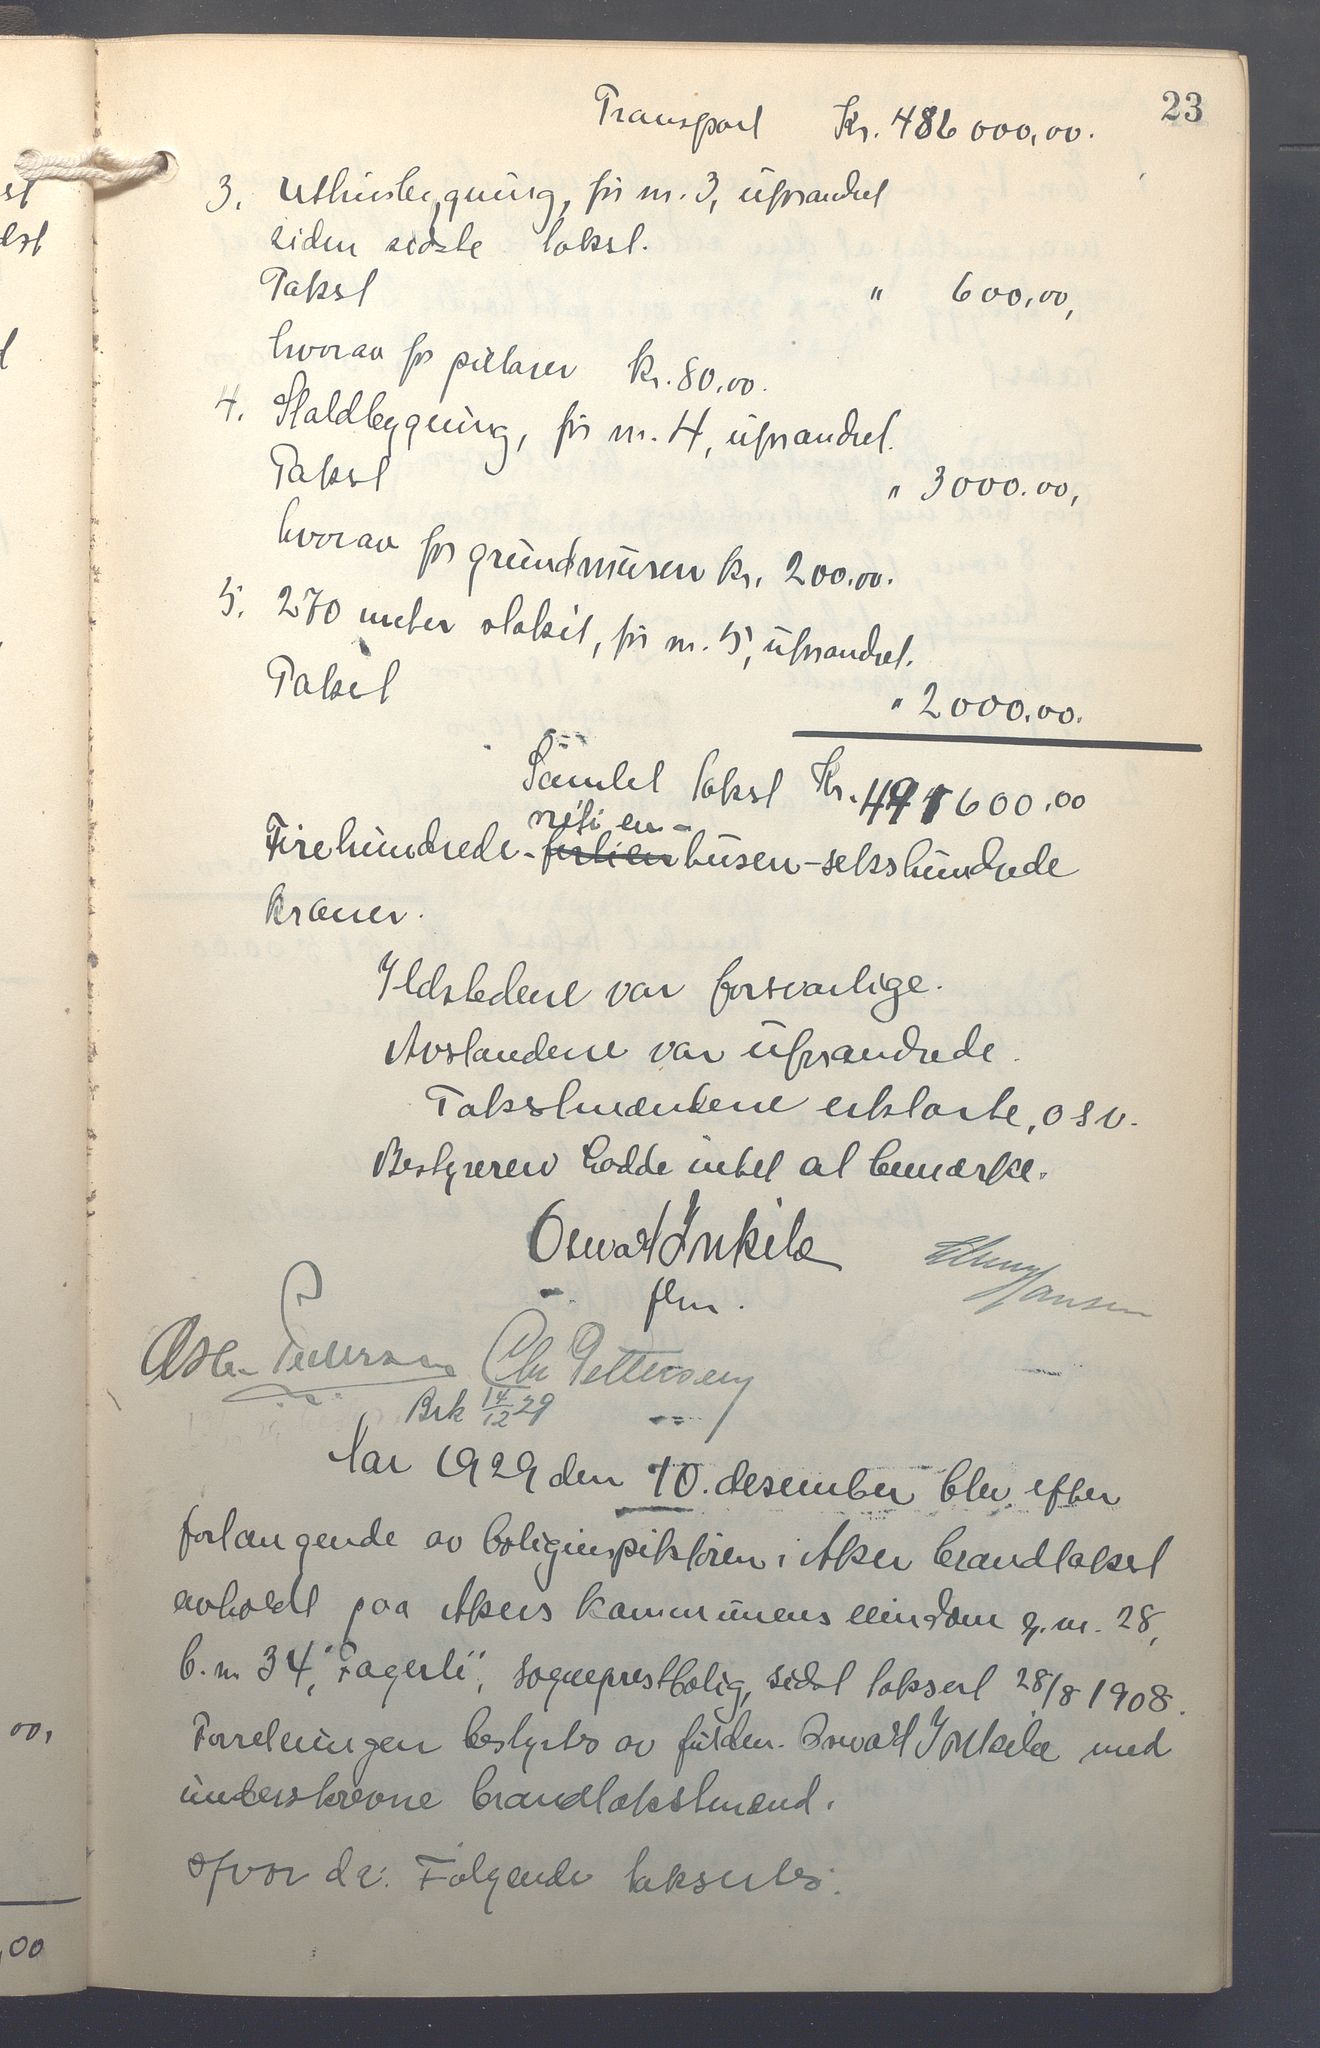 23
Transport Kr. 486000,00.
3. Uthusbygning, før nr. 3, uforandret
siden sidste takst.
Takst " 600,00,
hvorav for pillarer kr. 80,00.
4. Staldbygning, før nr. 4, uforandret.
Takst " 3000.00,
hvorav for grundmuren kr. 200.00.
5. 270 meter stakit, før nr. 5, uforandret.
Takst " 2000.00.
Samlet takst Kr. 491600.00
nitien-
Firehundrede-førtientusen-sekshundrede
kroner.
Ildstedene var forsvarlige.
Avstandene var uforandrede.
Takstmændene erklærte, osv.
Bestyreren hadde intet at bemærke.
Oswald Inkila
flm.
Hansen
Pedersen Chr Pettersen
Brk 14/12 29
Aar 1929 den 10. desember blev efter
forlangende av boliginspektøren i Aker brandtakst
avholdt paa Akers kommunens eiendom g. nr. 28,
b. nr. 34, "Fagerli", sogneprestbolig, sidst taksert 28/8 1908.
Forretningen bestyrtes av fuldm. Oswald Inkila med
underskrevne brandtakstmænd.
Hvor da: Følgende taksertes:
st
dst
00,
,00